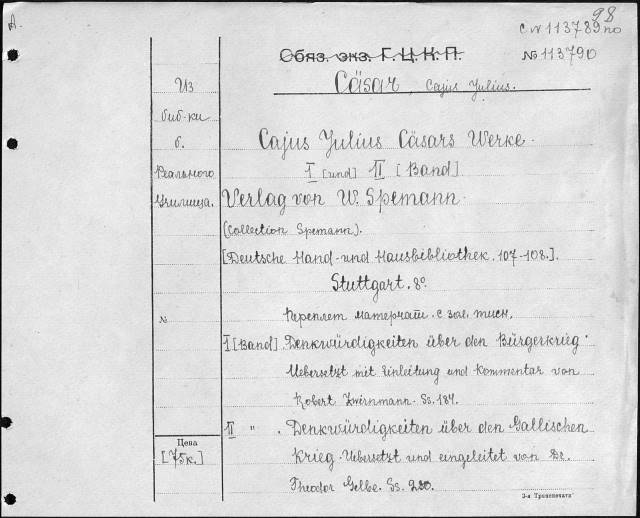 A.
98
с № 113789 по
№ 113790
Обяз. экз. Г.Ц.К.П.
Cäsar, Cajus Julius.
Из
биб-ки
б.
Реального
Училища.
Cajus Julius Cäsars Werke.
I [und] II [Band].
Verlag von W. Spemann.
(Collection Spemann).
[Deutsche Hand- und Hausbibliothek. 107-108.].
Stuttgart. 8º.
№
Переплет матерчат. с зол. тисн.
I [Band] Denkwürdigkeiten über den Bürgerkrieg.
Uebersetzt mit Einleitung und Kommentar von
Robert Zwirnmann. Ss. 184.
II " . Denkwürdigkeiten über den Gallischen
Krieg. Uebersetzt und eingeleitet von Dr.
Theodor Gelbe. Ss. 280.
Цена
[75к.]
3-я Трансп&#8203;ечать